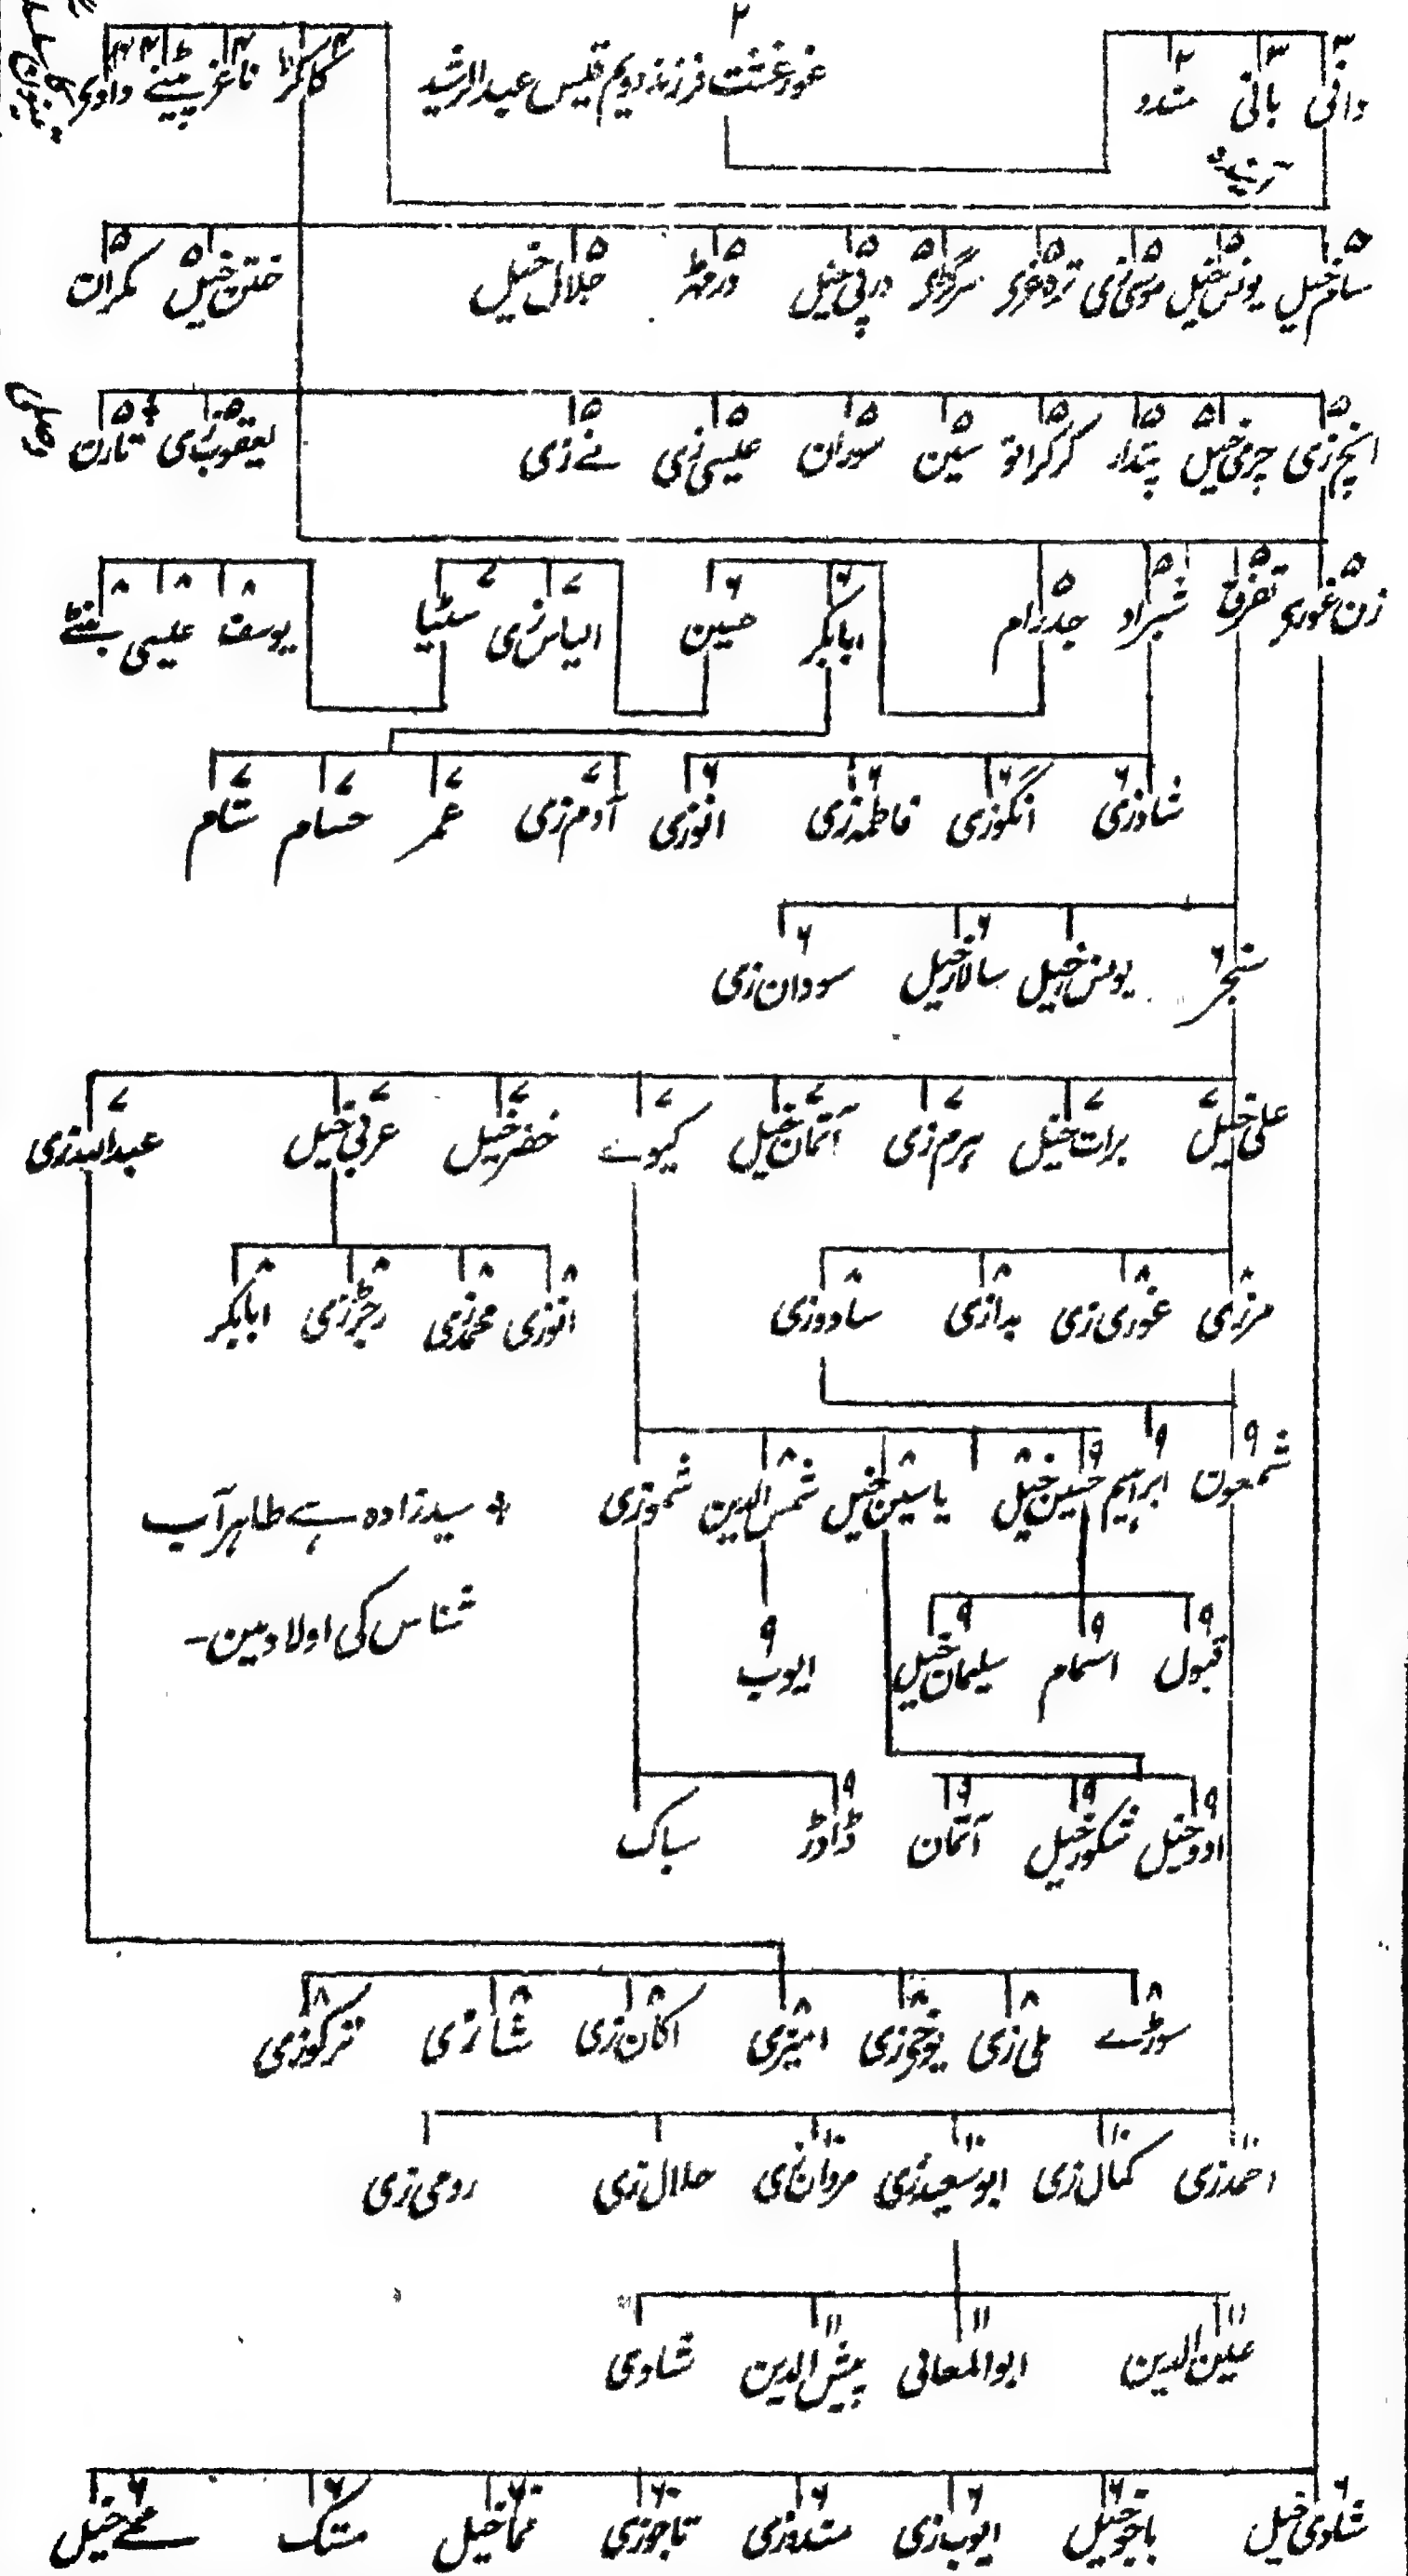 ۲
غورغشت فرزند دویم قیس عبدالرشید
دانی ۳ بابی ۳ مندو ۳
کاکڑ ۴ ناغر ۴ پینے ۴ داوی ۴
سام خیل ۵ یونس خیل ۵ موسی زی ۵ ترہ غری ۵ سرگڑی ۵ درپی خیل ۵ درمڑ ۵ جلال خیل ۵ ختن خیل ۵ مکران ۵
انچ زی ۵ چرمی خیل ۵ پندار ۵ کرکراتو ۵ سین ۵ سوران ۵ عیسی زی ۵ نے زی ۵ یعقوب زی ۵ تارن ۵ +
زن غوری ۵ تفرق ۵ شبراد ۵ جدرام ۵ ابابکر ۶ حسین ۶ الیاس زی ۷ سٹیا ۷ یوسف ۸ عیسی ۸
شادزی ۶ انگوزی ۶ فاطمہ زی ۶ انوزی ۶ آدم زی ۷ عمر ۷ حسام ۷ شام ۷
سنجر ۶ یونس خیل سالار خیل ۶ سودان زی ۶
علی خیل ۷ برات خیل ۷ ہرم زی ۷ آتمان خیل ۷ کیوے ۷ خضر خیل ۷ عربی خیل ۷ عبداللہ زی ۷
مرزی ۸ غوری زی ۸ بدازی ۸ سادوزی ۸ انوزی ۸ محمد زی ۸ رچڑزی ۸ ابابکر ۸
شمعون ۹ ابراہیم ۹ حسین خیل ۸ یاسین خیل ۸ شمس الدین ۸ شموزی ۸
+ سیدزادہ ہے طاہر آب
شناس کی اولاد مین۔
قبول ۹ اسمام ۹ سلیمان خیل ۹ ایوب ۹
ادو خیل ۹ شکور خیل ۹ آتمان ۹ ڈاوڑ ۹ سباک
سوڑے ۸ ملی زی ۸ یوخچی زی ۸ امیزی ۸ اکان زی ۸ شازی ۸ ترکوزی ۸
احمد زی ۱۰ کمال زی ۱۰ ابو سعید زی ۱۰ مروان زی ۱۰ حلال زی رومی زی
علین الدین ۱۱ ابو المعانی ۱۱ پیش الدین ۱۱ شادی
شادی خیل ۶ باجو خیل ۶ ایوب زی ۶ مندوزی ۶ تاجوزی ۶ نمتا خیل ۶ مستک ۶ محمے خیل ۶